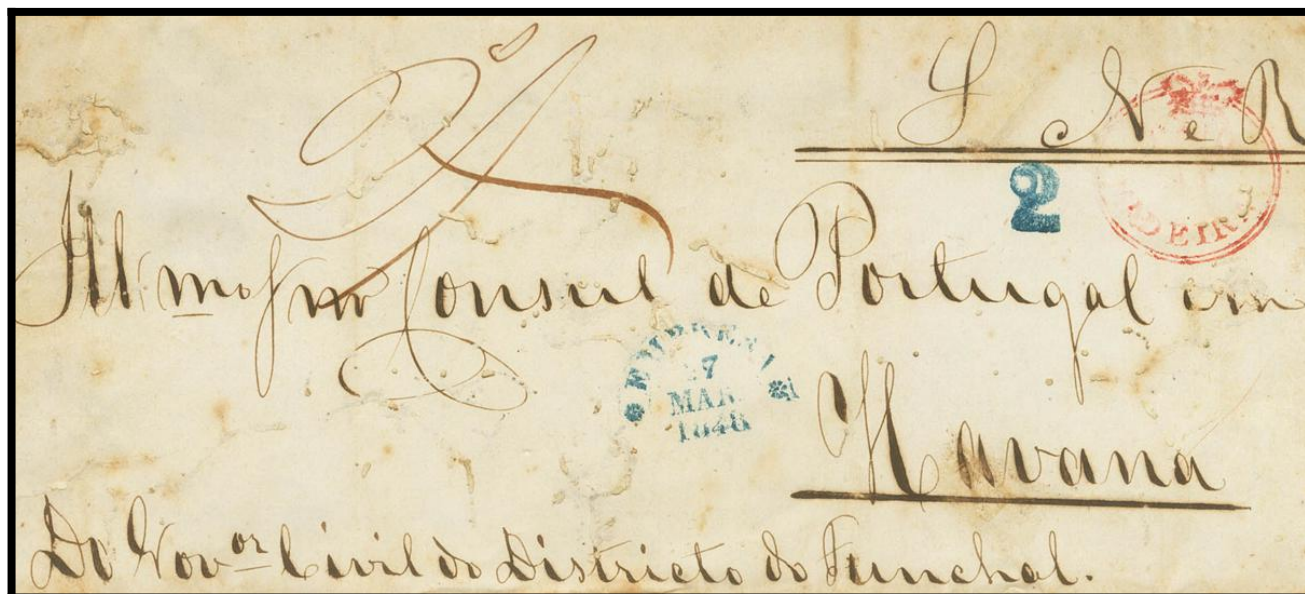 S N e R
2
MADEIRA
Ill mo Snr Consul de Portugal em
MAR
1848
Havana
Do Govor Civil do Districto do Funchal.